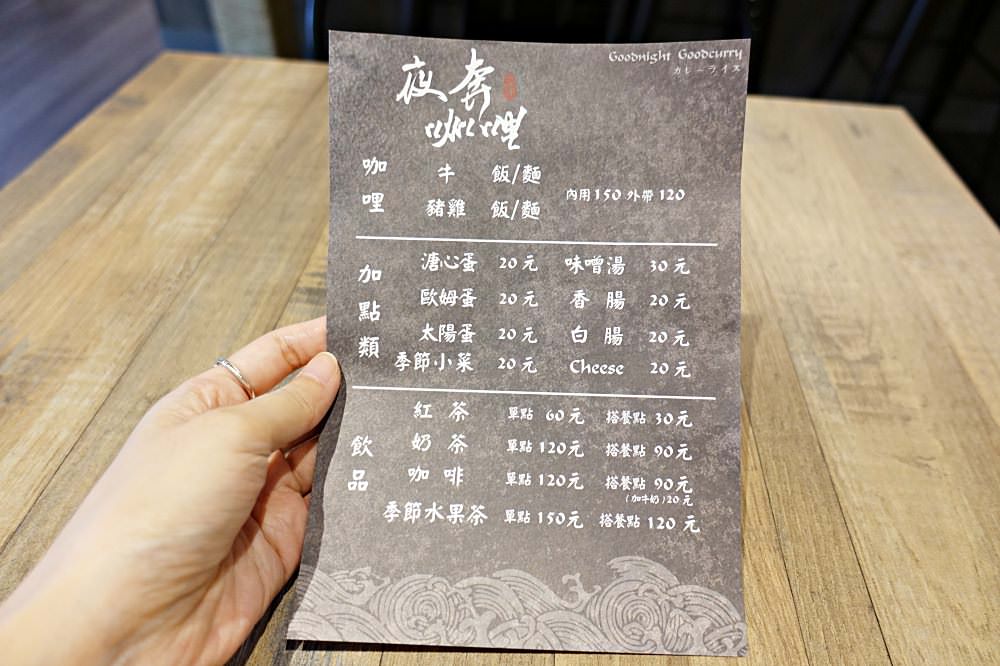 Goodnight Goodcurry
カレーライス
夜奔
咖哩
咖哩
牛 飯/麵
豬雞 飯/麵
內用150 外帶120
加點類
溏心蛋 20元 味噌湯 30元
歐姆蛋 20元 香腸 20元
太陽蛋 20元 白腸 20元
季節小菜 20元 Cheese 20元
飲品
紅茶 單點 60元 搭餐點 30元
奶茶 單點 120元 搭餐點 90元
咖啡 單點 120元 搭餐點 90元
(加牛奶)20元
季節水果茶 單點 150元 搭餐點 120元